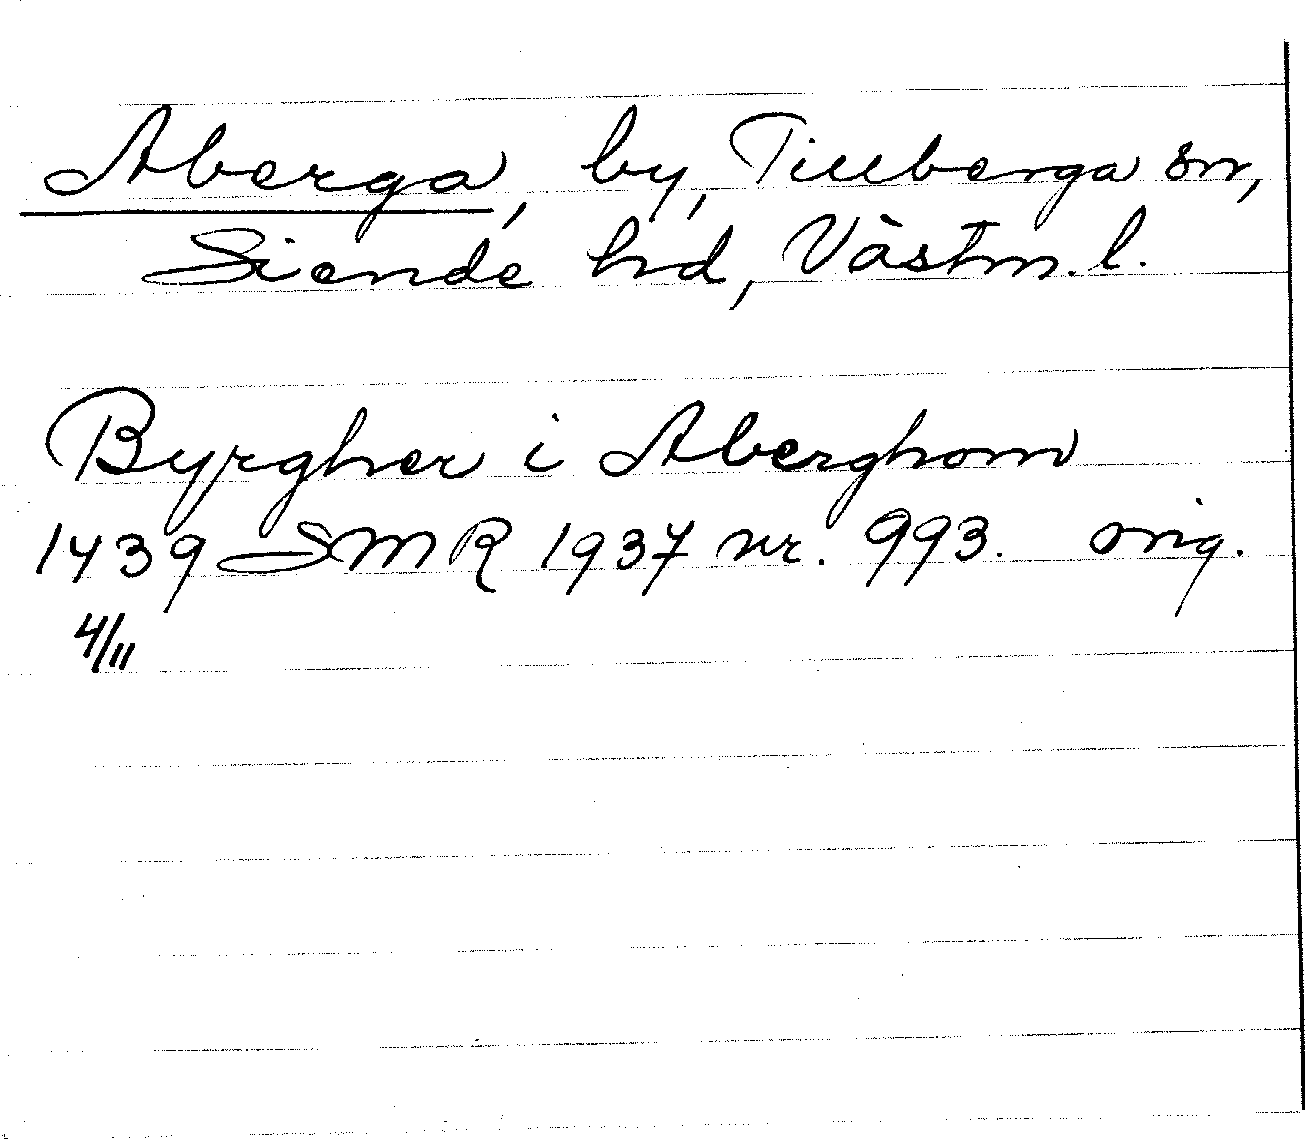 Aberga, by, Tillberga sn,
Siende hd, Västm. l.
Byrgher i Aberghom
1439 SMR 1937 nr. 993. orig.
4/11